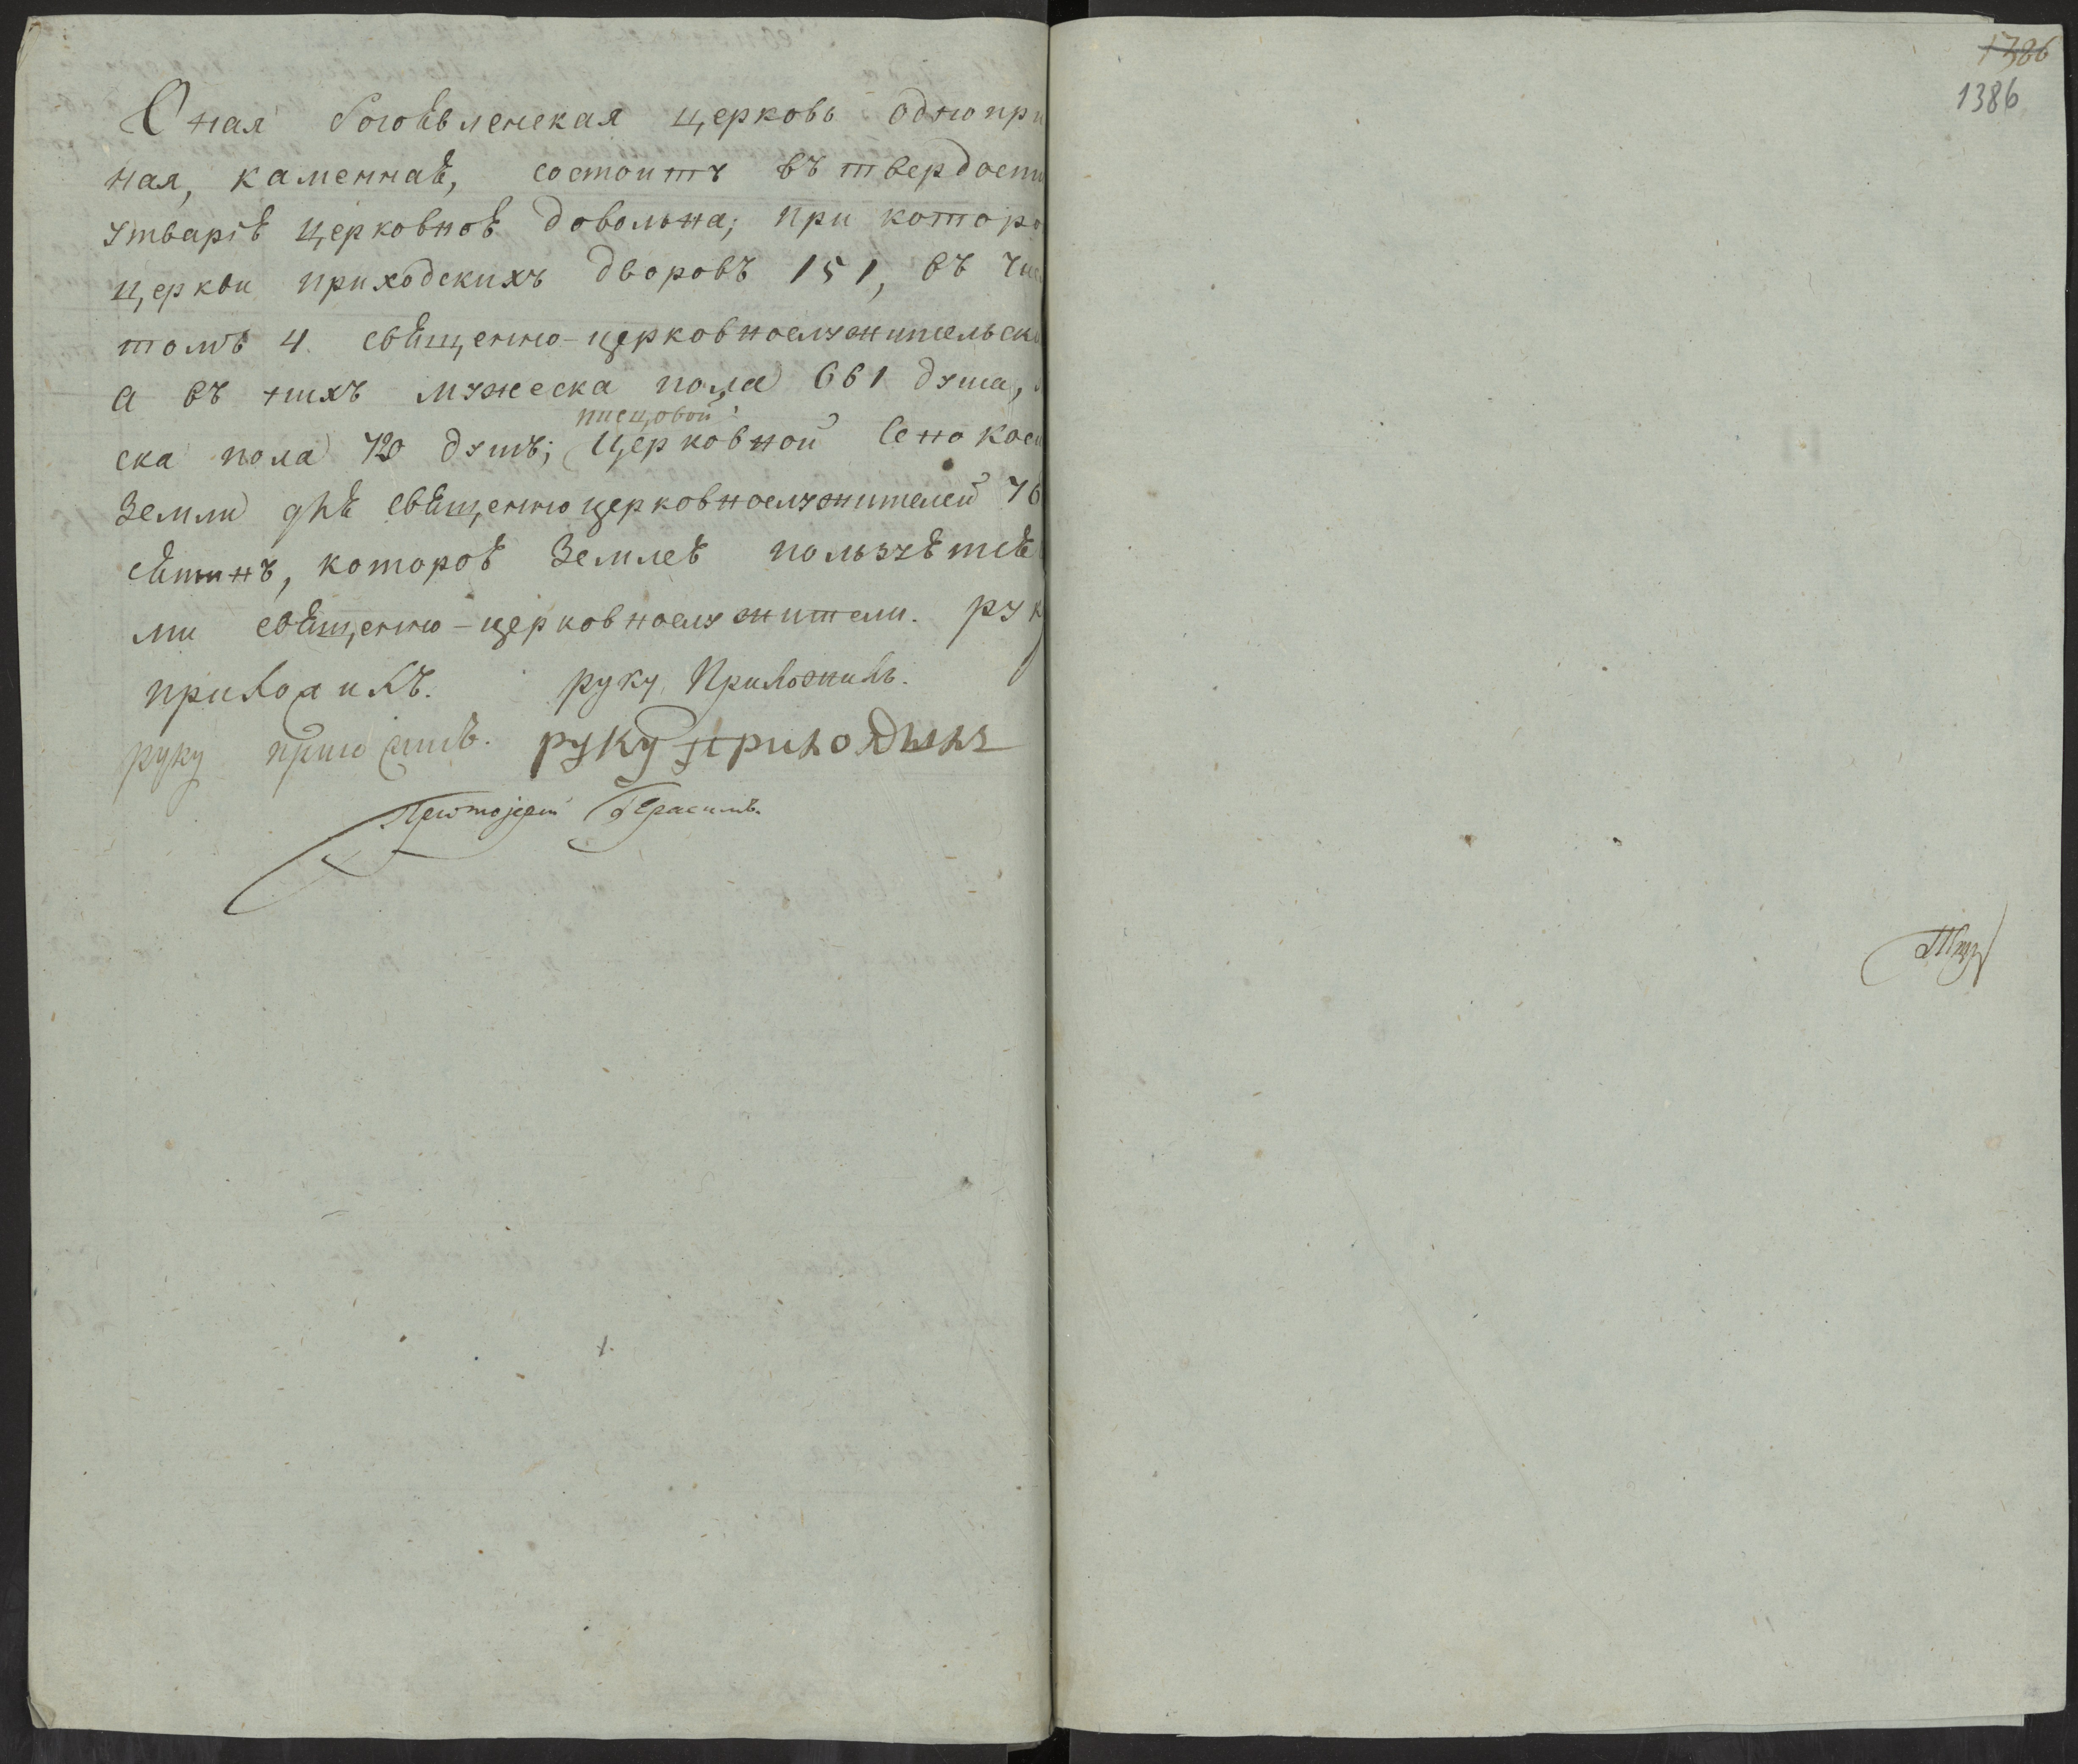 Оная Богоѣвленская церковь однопри
ная, каменнаѣ, состоитъ въ твердости
утваріѣ церковноѣ довольна; при которо
церкви приходскихъ дворовъ 151, въ чис
томъ 4 свѣщенно-церковнослужительски
а въ нихъ мужеска пола 661 душа,
писцовой
ска пола 720 душъ; церковной сенокос
земли длѣ свѣщенноцерковнослужителей 76
сѣтинъ, котороѣ землеѣ пользуѣтсѣ
ми свѣщенно-церковнослужители. рук
приложилъ. руку Приложилъ.
руку приложилъ. руку приложилъ
Протоіерей Герасимъ.
1386
1386